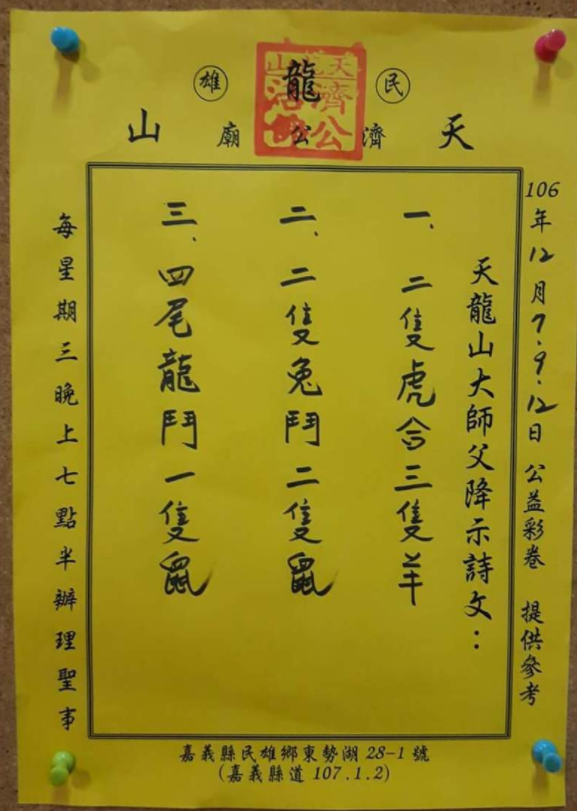 民雄
天龍山
濟公廟
天龍山
濟公
活佛
106年12月7.9.12日 公益彩卷 提供參考
天龍山大師父降示詩文：
一、二隻虎合三隻羊
二、二隻兔鬥二隻鼠
三、四尾龍鬥一隻鼠
每星期三晚上七點半辦理聖事
嘉義縣民雄鄉東勢湖28-1號
(嘉義縣道107.1.2)